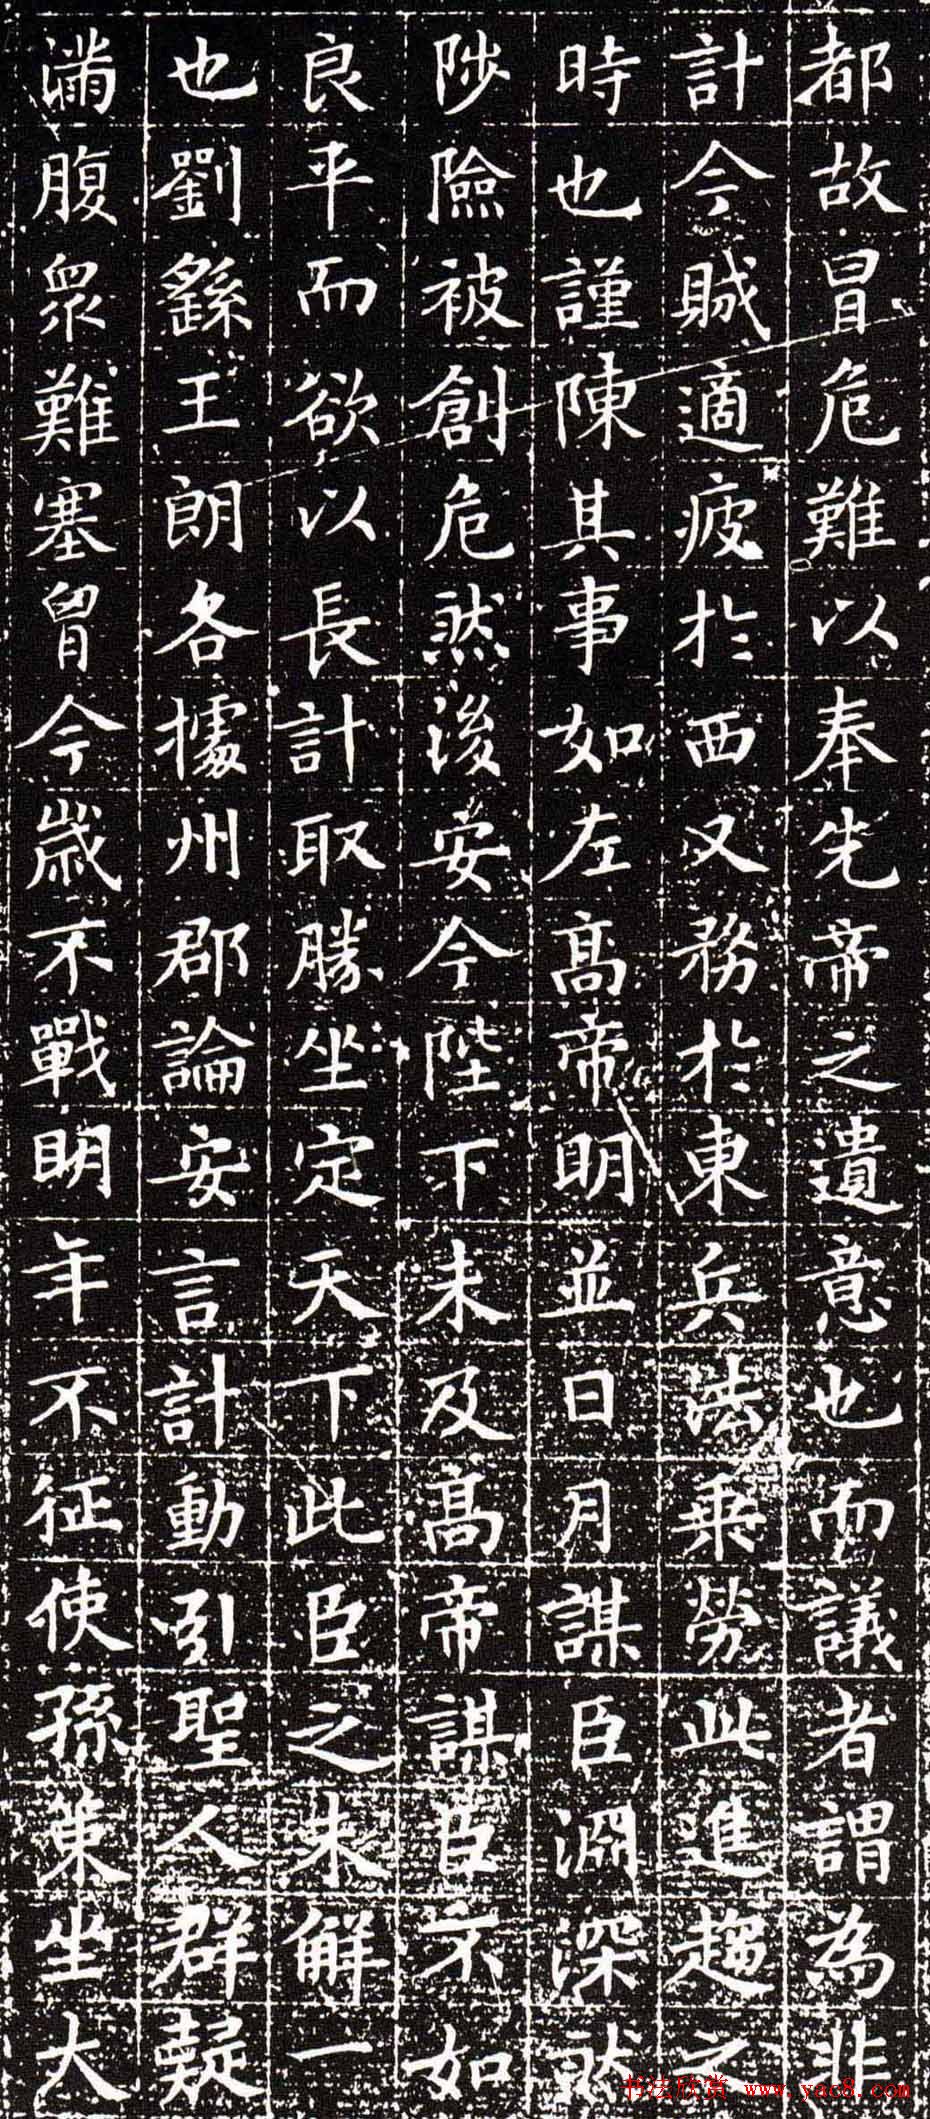 都故冒危難以奉先帝之遺意也而議者謂為非
計今賊適疲於西又務於東兵法乗勞此進趨之
時也謹陳其事如左髙帝明並日月謀臣淵深然
陟險被創危然後安今陛下未及髙帝謀臣不如
良平而欲以長計取勝坐定天下此臣之未解一
也劉繇王朗各據州郡論安言計動引聖人群疑
滿腹眾難塞胷今歲不戰明年不征使孫策坐大
书法欣赏 www.yac8.com